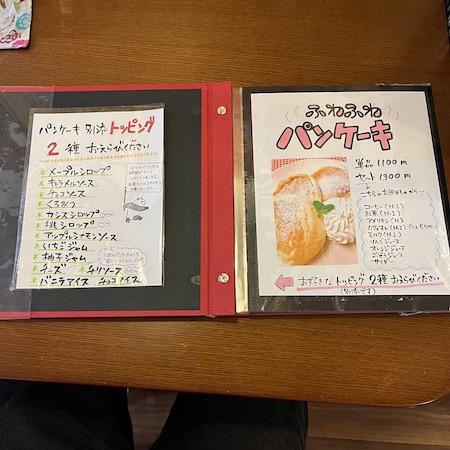 パンケーキ 別添 トッピング
2種 お選びください
メープルシロップ
キャラメルソース
チョコソース
くろみつ
カシスシロップ
桃シロップ
アップルシナモンソース
いちごジャム
柚子ジャム
チーズ チリソース
バニラアイス チョコアイス
ふわふわ
パンケーキ
単品 1100円
セット 1300円
コーヒー(H.I)
お茶(H.I)
アメリカン(H.I)
ミルク(H.I)
りんごジュース
オレンジジュース
サイダー
お好きな トッピング 2種 お選びください